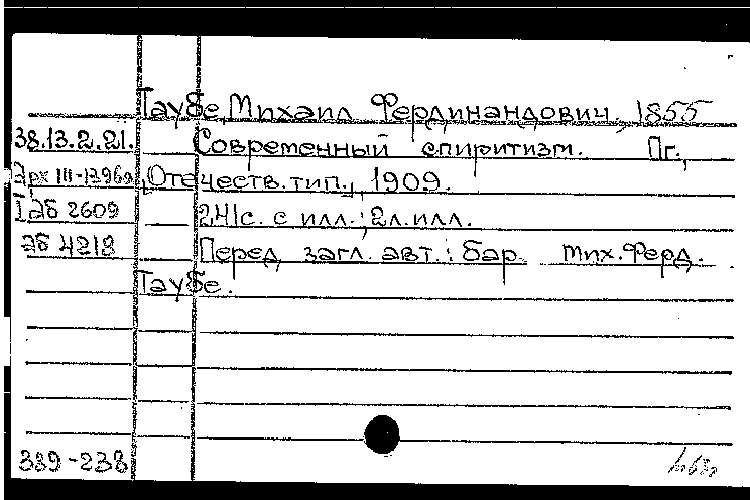 Таубе, Михаил Фердинандович, 1855
38.13.2.21. Современный спиритизм. Пг.,
"Отечеств. тип.", 1909.
IАб 2609 241с. с илл.; 2л.илл.
Аб 4218 Перед загл. авт.: бар. Мих.Ферд.
Таубе.
339-238